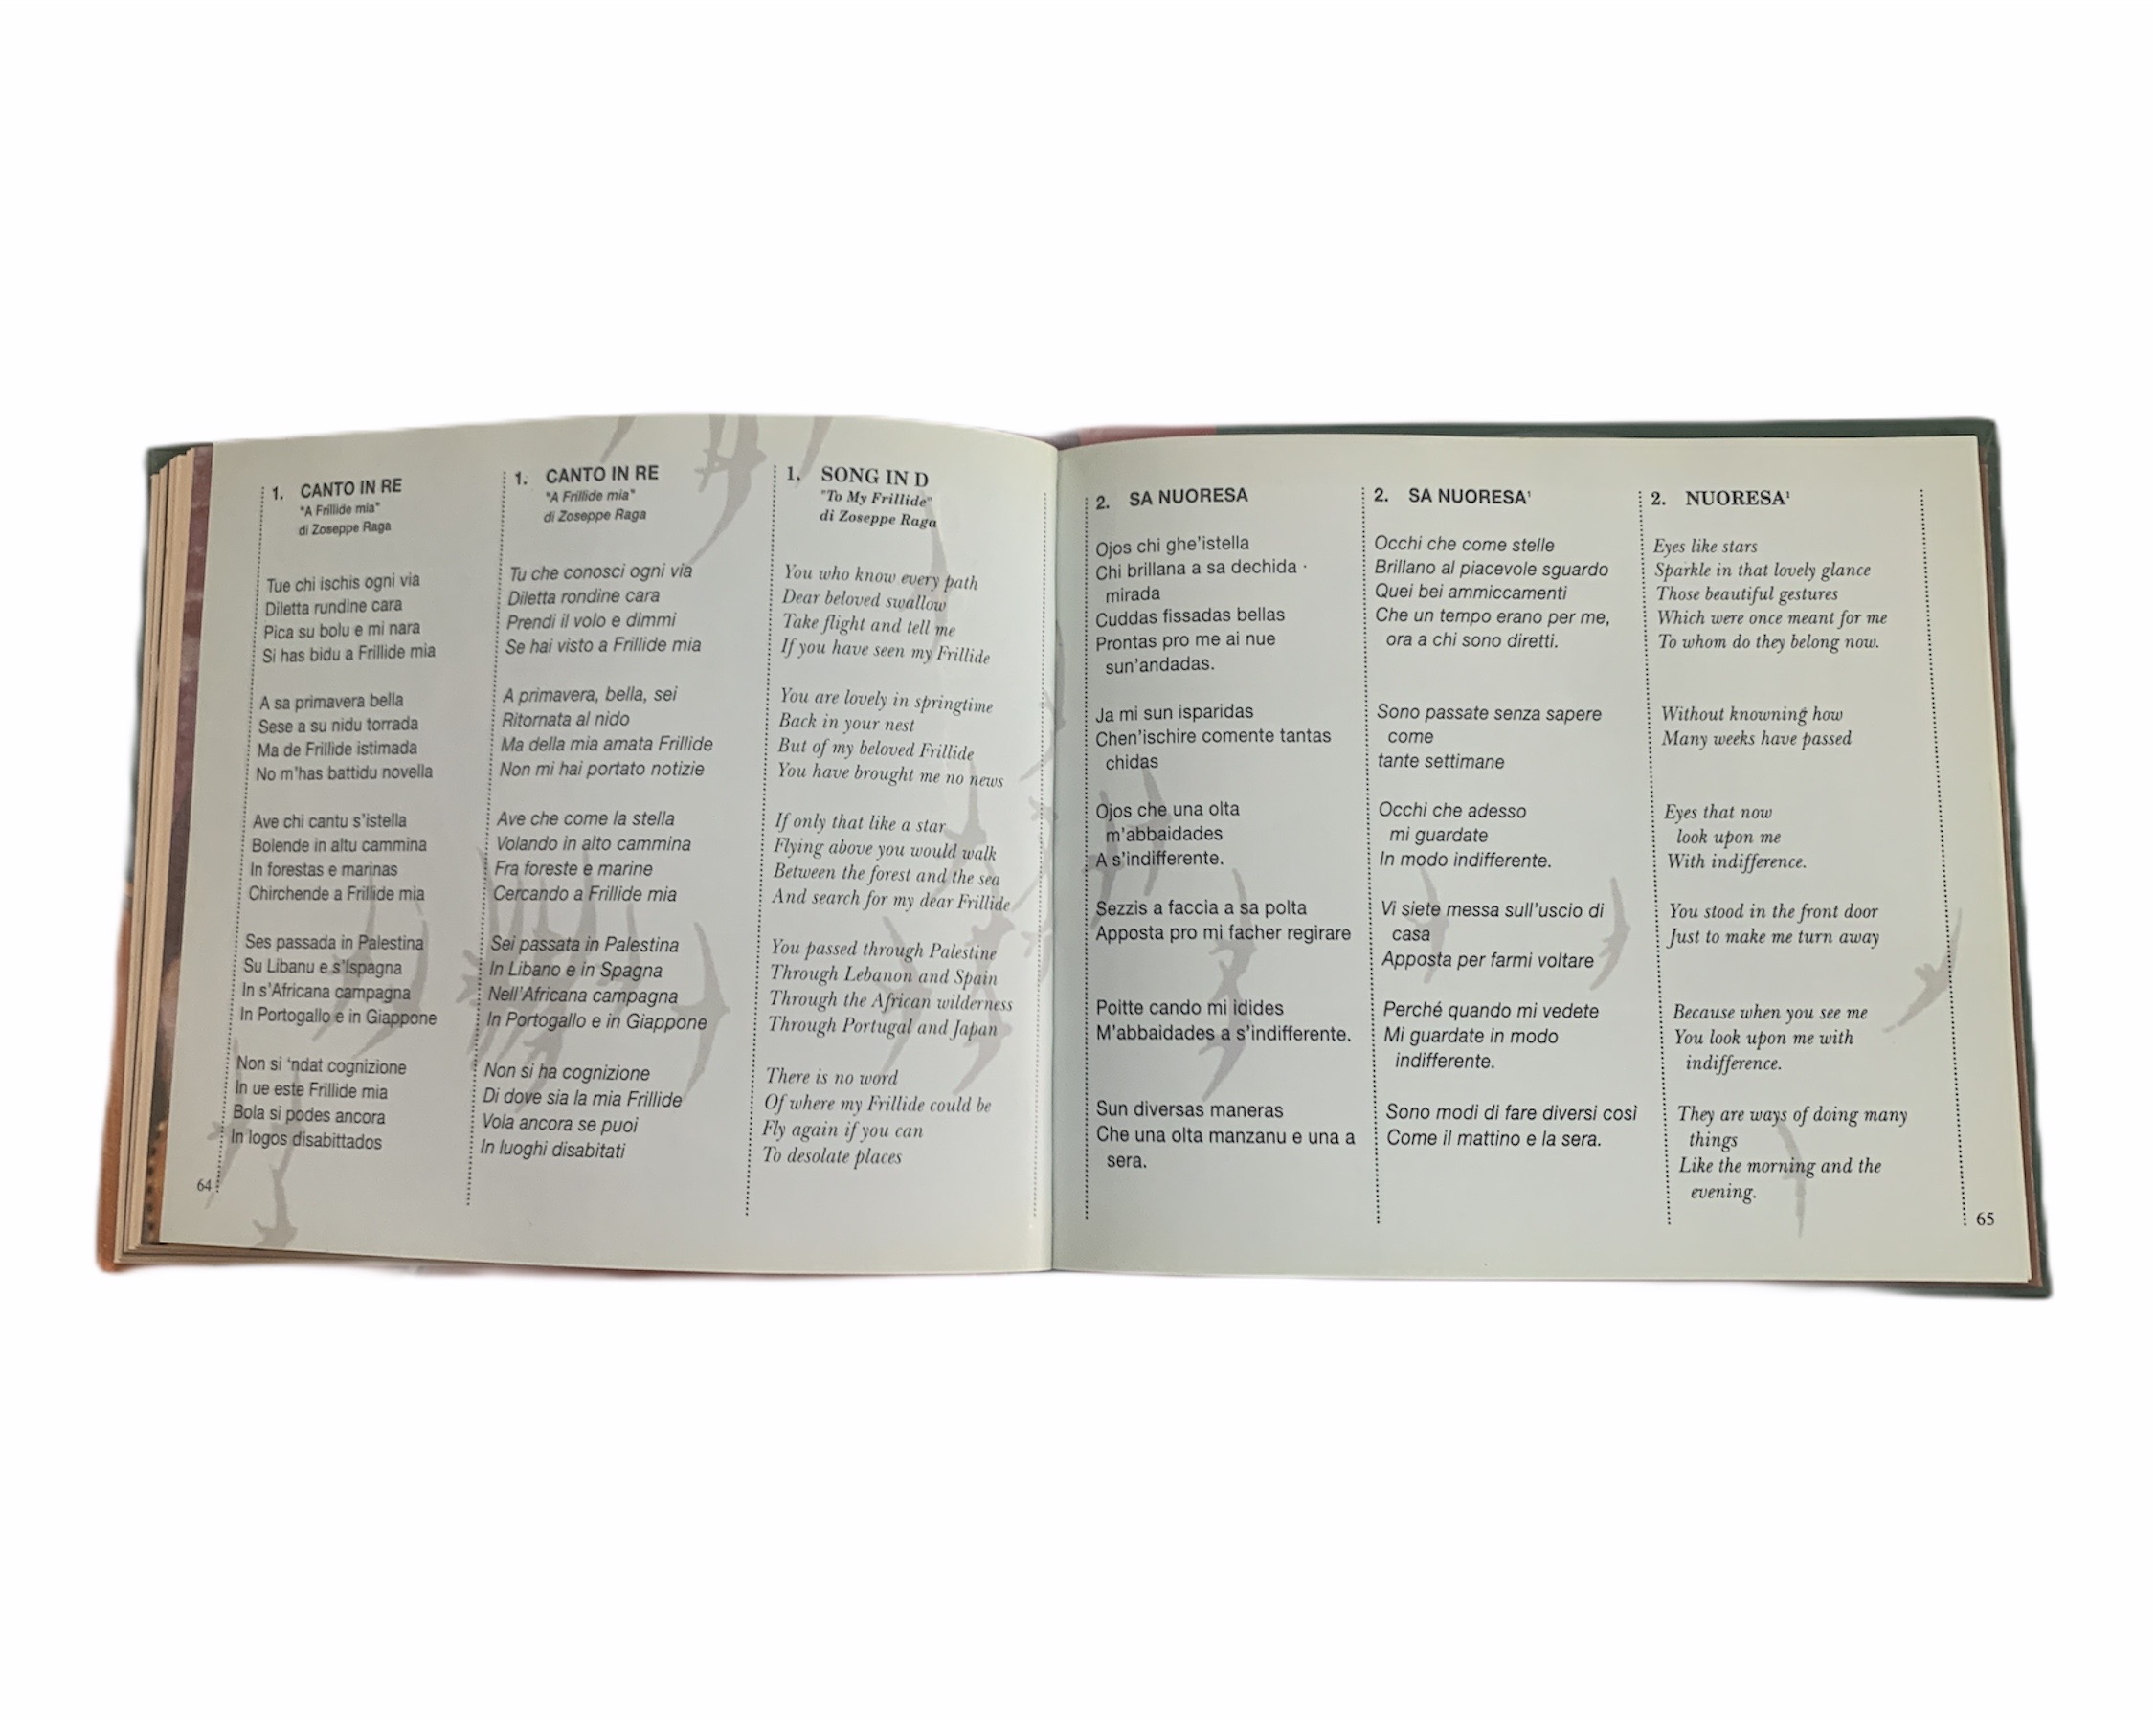 1. CANTO IN RE
"A Frillide mia"
di Zoseppe Raga
Tue chi ischis ogni via
Diletta rundine cara
Pica su bolu e mi nara
Si has bidu a Frillide mia
A sa primavera bella
Sese a su nidu torrada
Ma de Frillide istimada
No m'has battidu novella
Ave chi cantu s'istella
Bolende in altu cammina
In forestas e marinas
Chirchende a Frillide mia
Ses passada in Palestina
Su Libanu e s'Ispagna
In s'Africana campagna
In Portogallo e in Giappone
Non si 'ndat cognizione
In ue este Frillide mia
Bola si podes ancora
In logos disabittados
64
1. CANTO IN RE
"A Frillide mia"
di Zoseppe Raga
Tu che conosci ogni via
Diletta rondine cara
Prendi il volo e dimmi
Se hai visto a Frillide mia
A primavera, bella, sei
Ritornata al nido
Ma della mia amata Frillide
Non mi hai portato notizie
Ave che come la stella
Volando in alto cammina
Fra foreste e marine
Cercando a Frillide mia
Sei passata in Palestina
In Libano e in Spagna
Nell'Africana campagna
In Portogallo e in Giappone
Non si ha cognizione
Di dove sia la mia Frillide
Vola ancora se puoi
In luoghi disabitati
1. SONG IN D
"To My Frillide"
di Zoseppe Raga
You who know every path
Dear beloved swallow
Take flight and tell me
If you have seen my Frillide
You are lovely in springtime
Back in your nest
But of my beloved Frillide
You have brought me no news
If only that like a star
Flying above you would walk
Between the forest and the sea
And search for my dear Frillide
You passed through Palestine
Through Lebanon and Spain
Through the African wilderness
Through Portugal and Japan
There is no word
Of where my Frillide could be
Fly again if you can
To desolate places
2. SA NUORESA
Ojos chi ghe'istella
Chi brillana a sa dechida ·
mirada
Cuddas fissadas bellas
Prontas pro me ai nue
sun'andadas.
Ja mi sun isparidas
Chen'ischire comente tantas
chidas
Ojos che una olta
m'abbaidades
A s'indifferente.
Sezzis a faccia a sa polta
Apposta pro mi facher regirare
Poitte cando mi idides
M'abbaidades a s'indifferente.
Sun diversas maneras
Che una olta manzanu e una a
sera.
2. SA NUORESA¹
Occhi che come stelle
Brillano al piacevole sguardo
Quei bei ammiccamenti
Che un tempo erano per me,
ora a chi sono diretti.
Sono passate senza sapere
come
tante settimane
Occhi che adesso
mi guardate
In modo indifferente.
Vi siete messa sull'uscio di
casa
Apposta per farmi voltare
Perché quando mi vedete
Mi guardate in modo
indifferente.
Sono modi di fare diversi così
Come il mattino e la sera.
2. NUORESA¹
Eyes like stars
Sparkle in that lovely glance
Those beautiful gestures
Which were once meant for me
To whom do they belong now.
Without knowning how
Many weeks have passed
Eyes that now
look upon me
With indifference.
You stood in the front door
Just to make me turn away
Because when you see me
You look upon me with
indifference.
They are ways of doing many
things
Like the morning and the
evening.
65